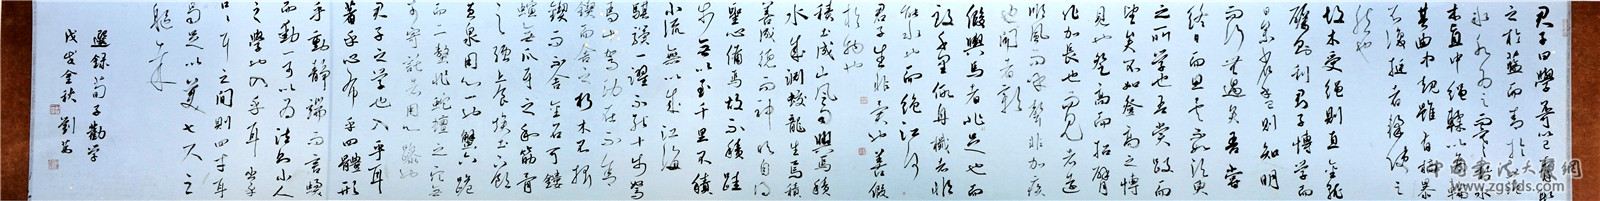 君子曰學不可以已青取
之於藍而青於藍
冰水為之而寒於水
木直中繩輮以為輪
其曲中規雖有槁暴
不復挺者輮使之
然也
故木受繩則直金就
礪則利君子博學而
日參省乎己則知明
而行無過矣吾嘗
終日而思矣不如須臾
之所學也吾嘗跂而
望矣不如登高之博
見也登高而招臂
非加長也而見者遠
順風而呼聲非加疾
也聞者彰
假輿馬者非足也而
致千里假舟楫者非
能水也而絕江河
君子生非異也善假
於物也
積土成山風雨興焉積
水成淵蛟龍生焉積
善成德而神明自得
聖心備焉故不積跬
步無以至千里不積
小流無以成江海
騏驥一躍不能十步駑
馬十駕功在不舍
鍥而舍之朽木不折
鍥而不舍金石可鏤
螾無爪牙之利筋骨
之強上食埃土下飲
黃泉用心一也蟹六跪
而二螯非蛇蟺之穴無
可寄託者用心躁也
君子之學也入乎耳
著乎心布乎四體形
乎動靜端而言蝡
而動一可以為法則小人
之學也入乎耳出乎
口口耳之間則四寸耳
曷足以美七尺之
軀哉
選錄荀子勸學
戊戌金秋 劉
www.zgsfds.com